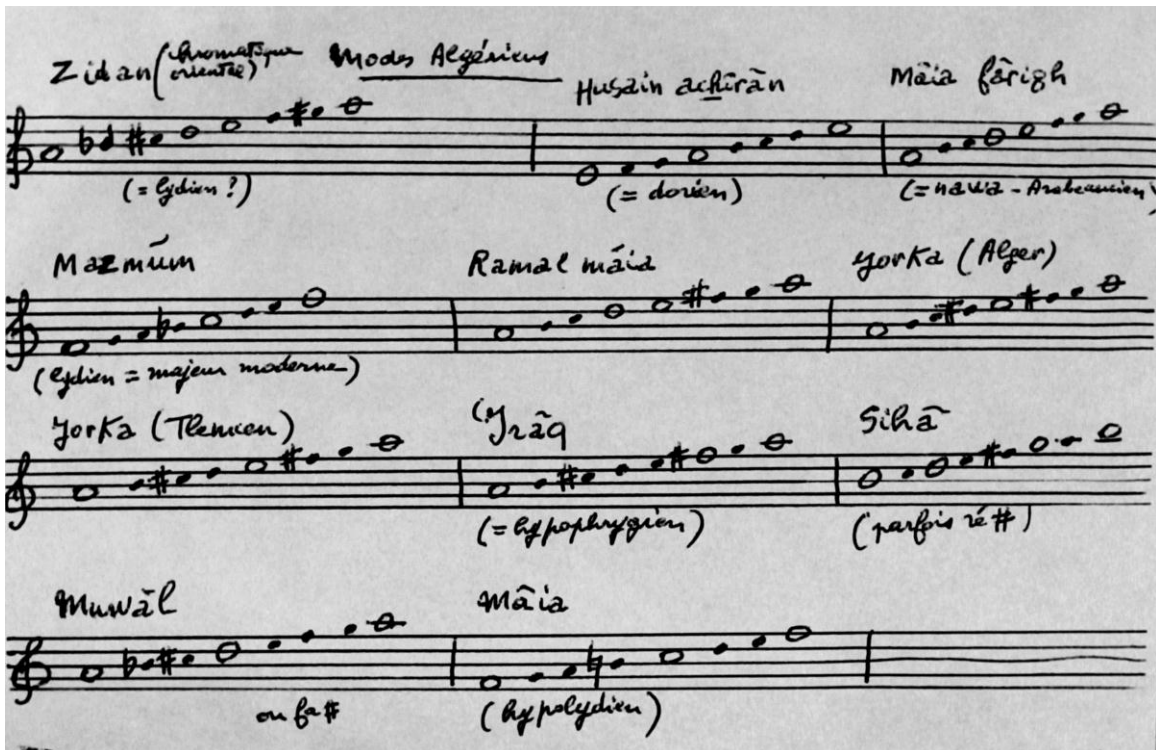 Zidan (chromatique orientale) Modes Algériens
Husain achīrān Mâia fârigh
(= lydien ?) (= dorien) (= nawa - Arabe ancien)
Mazmūm Ramal mâia Jorka (Alger)
(lydien = majeur moderne)
Jorka (Tlemcen) ('Irāq Sihā
(= hypophrygien) (parfois ré #)
Muwāl Mâia
ou fa# (hypolydien)